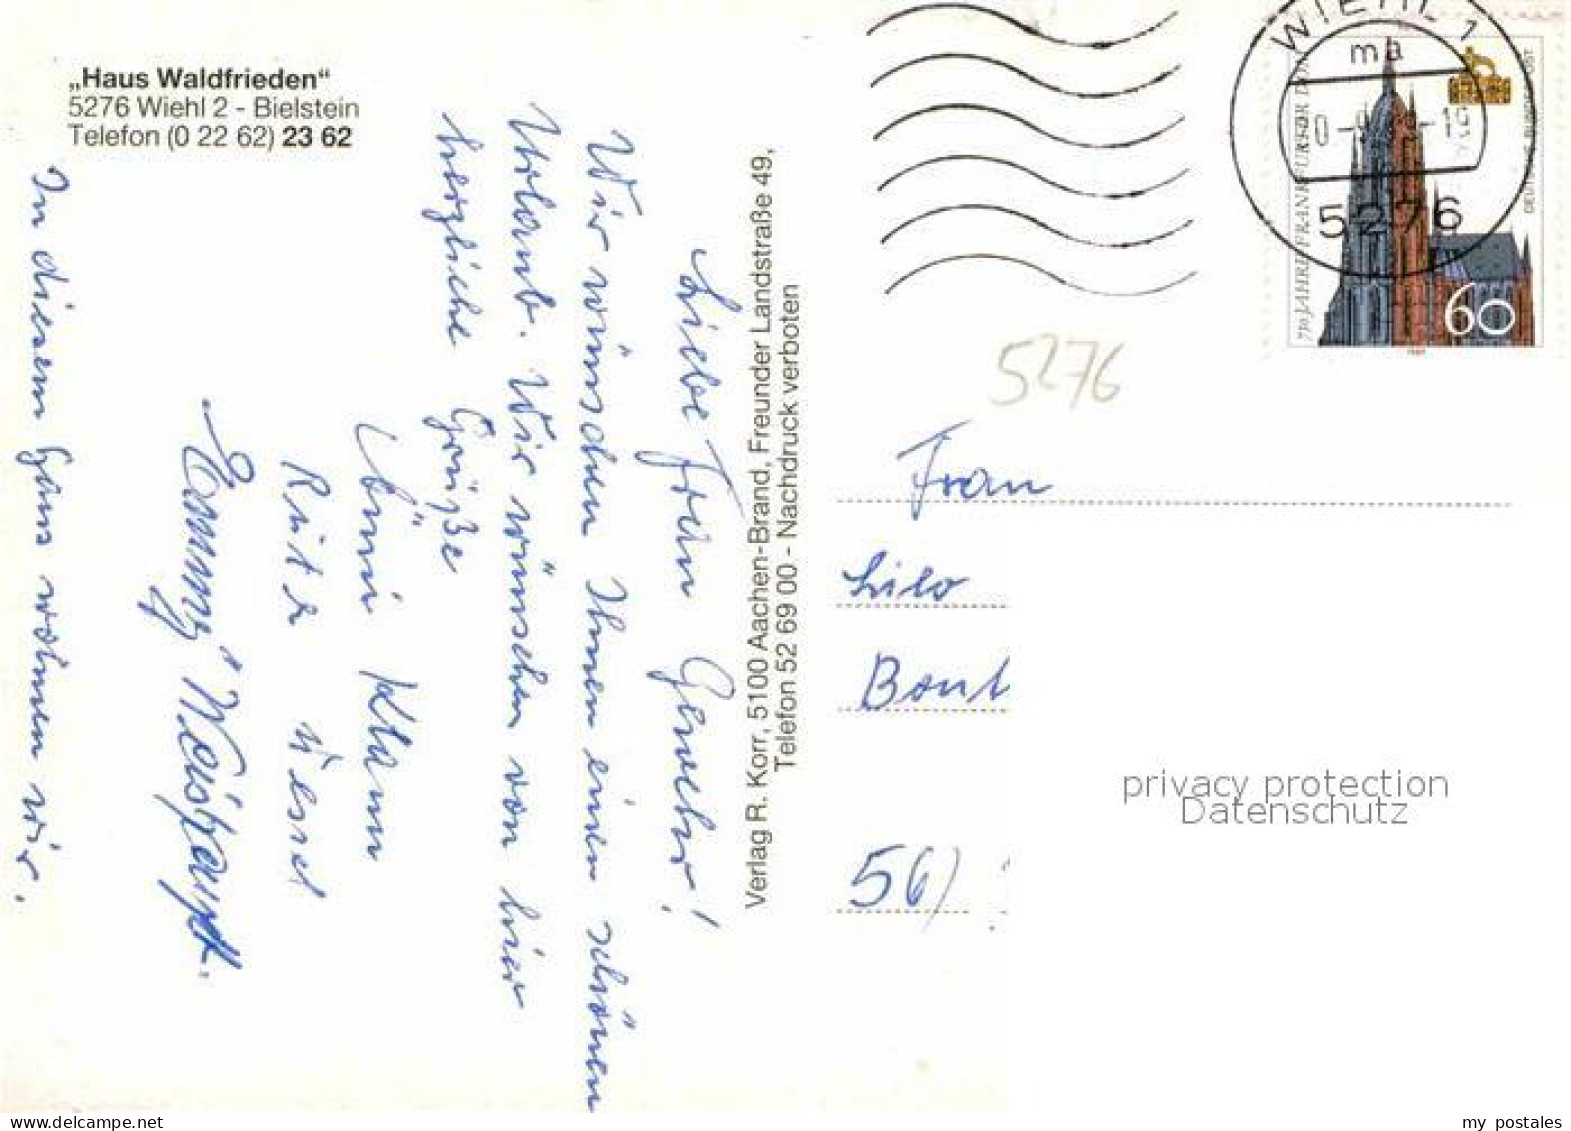 „Haus Waldfrieden“
5276 Wiehl 2 - Bielstein
Telefon (0 22 62) 23 62
Liebe Frau
Wir wünschen Ihnen einen schönen
Urlaub. Wir wünschen von hier
herzliche Grüße
Änni Klamm
Ruth Wessel
Emmy
In diesem Haus wohnen wir.
Verlag R. Korr, 5100 Aachen-Brand, Freunder Landstraße 49,
Telefon 52 69 00 - Nachdruck verboten
WIEHL 1
ma
5276
750 JAHRE FRANKFURTER DOM
DEUTSCHE BUNDESPOST
60
1989
5276
Frau
Lilo
Bont
56)
privacy protection
Datenschutz
delcampe.net
my_postales